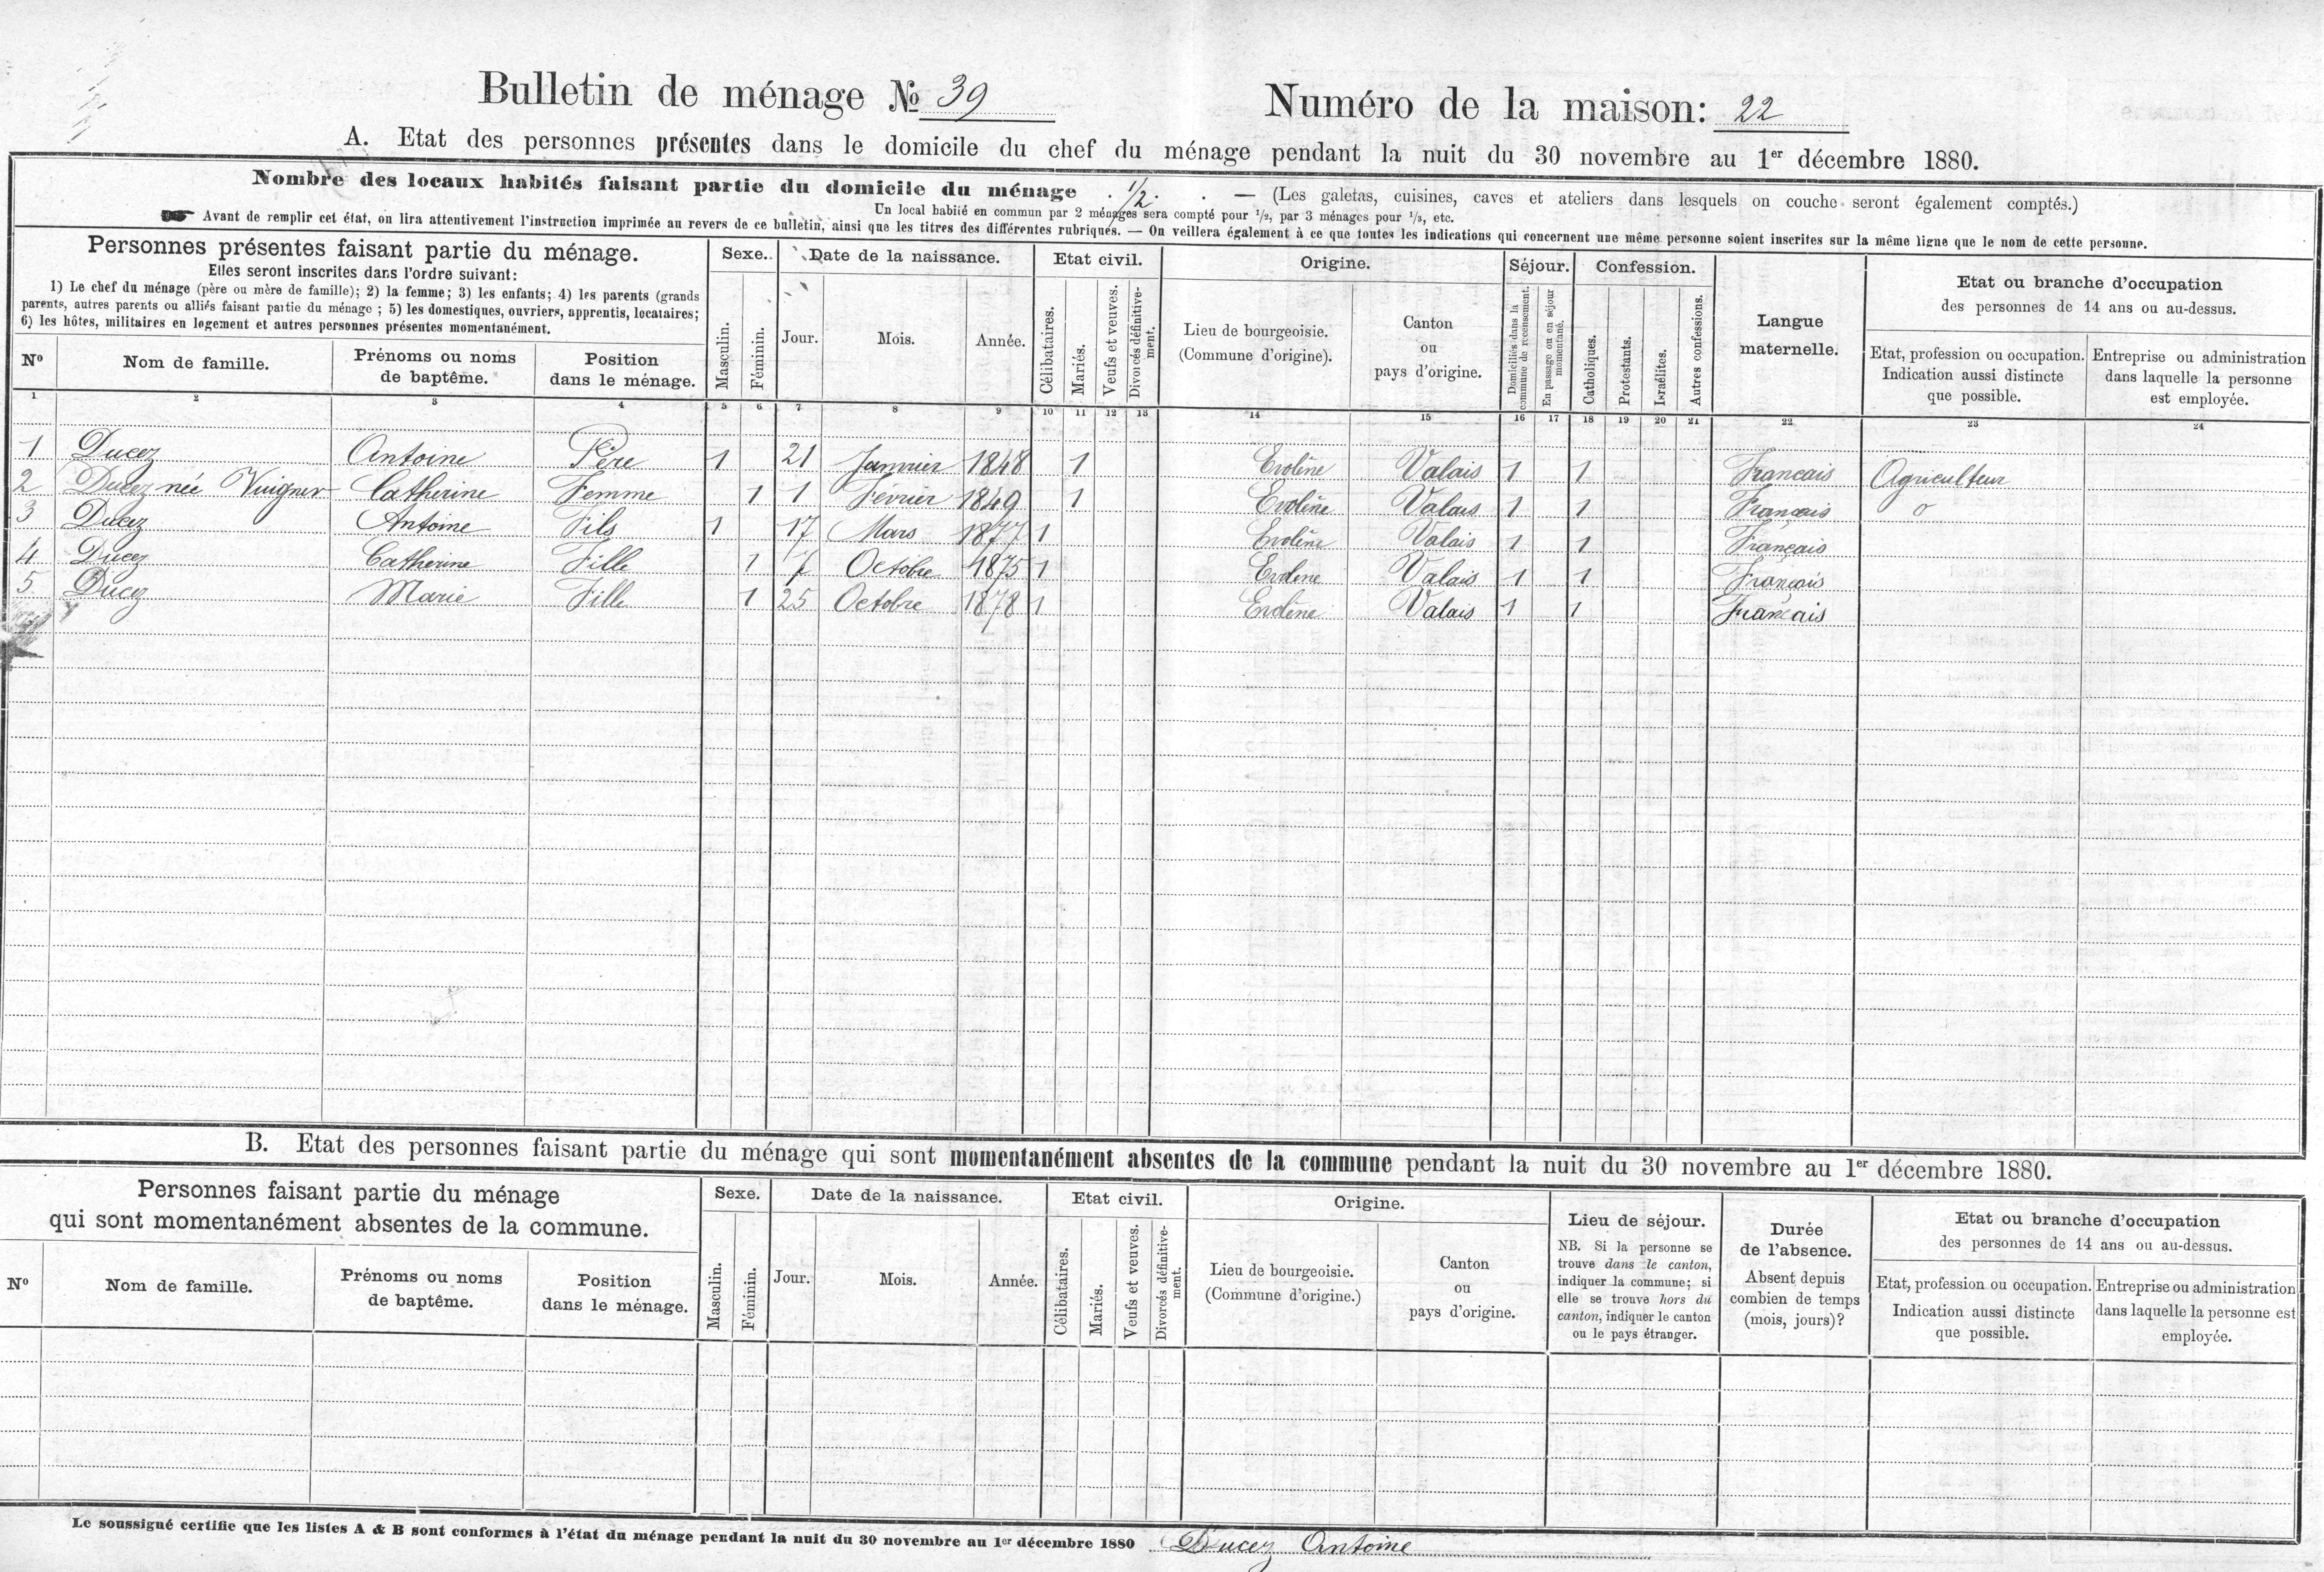 Bulletin de ménage № 39 Numéro de la maison: 22
A. Etat des personnes présentes dans le domicile du chef du ménage pendant la nuit du 30 novembre au 1er décembre 1880.
Nombre des locaux habités faisant partie du domicile du ménage . 1/2 . . — (Les galetas, cuisines, caves et ateliers dans lesquels on couche seront également comptés.)
Un local habité en commun par 2 ménages sera compté pour 1/2, par 3 ménages pour 1/3, etc.
Avant de remplir cet état, on lira attentivement l'instruction imprimée au revers de ce bulletin, ainsi que les titres des différentes rubriques. — On veillera également à ce que toutes les indications qui concernent une même personne soient inscrites sur la même ligne que le nom de cette personne.
Personnes présentes faisant partie du ménage.
Elles seront inscrites dans l'ordre suivant:
1) Le chef du ménage (père ou mère de famille); 2) la femme; 3) les enfants; 4) les parents (grands
parents, autres parents ou alliés faisant partie du ménage; 5) les domestiques, ouvriers, apprentis, locataires;
6) les hôtes, militaires en logement et autres personnes présentes momentanément.
Nº
Nom de famille.
Prénoms ou noms
de baptême.
Position
dans le ménage.
Sexe.
Masculin.
Féminin.
Date de la naissance.
Jour.
Mois.
Année.
Etat civil.
Célibataires.
Mariés.
Veufs et veuves.
Divorcés définitive-
ment.
Origine.
Lieu de bourgeoisie.
(Commune d'origine).
Canton
ou
pays d'origine.
Séjour.
Domiciliés dans la
commune de recensement.
En passage ou en séjour
momentané.
Confession.
Catholiques.
Protestants.
Israélites.
Autres confessions.
Langue
maternelle.
Etat ou branche d'occupation
des personnes de 14 ans ou au-dessus.
Etat, profession ou occupation.
Indication aussi distincte
que possible.
Entreprise ou administration
dans laquelle la personne
est employée.
1 2 3 4 5 6 7 8 9 10 11 12 13 14 15 16 17 18 19 20 21 22 23 24
1 Ducez Antoine Père 1 21 Janvier 1848 1 Evolène Valais 1 1 Francais Agriculteur
2 Ducez née Vuigner Catherine Femme 1 1 Février 1849 1 Evolène Valais 1 1 Français o
3 Ducez Antoine Fils 1 17 Mars 1877 1 Evolène Valais 1 1 Français
4 Ducez Catherine Fille 1 7 Octobre 1875 1 Evolene Valais 1 1 Français
5 Ducez Marie Fille 1 25 Octobre 1878 1 Evolène Valais 1 1 Français
B. Etat des personnes faisant partie du ménage qui sont momentanément absentes de la commune pendant la nuit du 30 novembre au 1er décembre 1880.
Personnes faisant partie du ménage
qui sont momentanément absentes de la commune.
Nº
Nom de famille.
Prénoms ou noms
de baptême.
Position
dans le ménage.
Sexe.
Masculin.
Féminin.
Date de la naissance.
Jour.
Mois.
Année.
Etat civil.
Célibataires.
Mariés.
Veufs et veuves.
Divorcés définitive-
ment.
Origine.
Lieu de bourgeoisie.
(Commune d'origine.)
Canton
ou
pays d'origine.
Lieu de séjour.
NB. Si la personne se
trouve dans le canton,
indiquer la commune; si
elle se trouve hors du
canton, indiquer le canton
ou le pays étranger.
Durée
de l'absence.
Absent depuis
combien de temps
(mois, jours)?
Etat ou branche d'occupation
des personnes de 14 ans ou au-dessus.
Etat, profession ou occupation.
Indication aussi distincte
que possible.
Entreprise ou administration
dans laquelle la personne est
employée.
Le soussigné certifie que les listes A & B sont conformes à l'état du ménage pendant la nuit du 30 novembre au 1er décembre 1880 Ducez Antoine